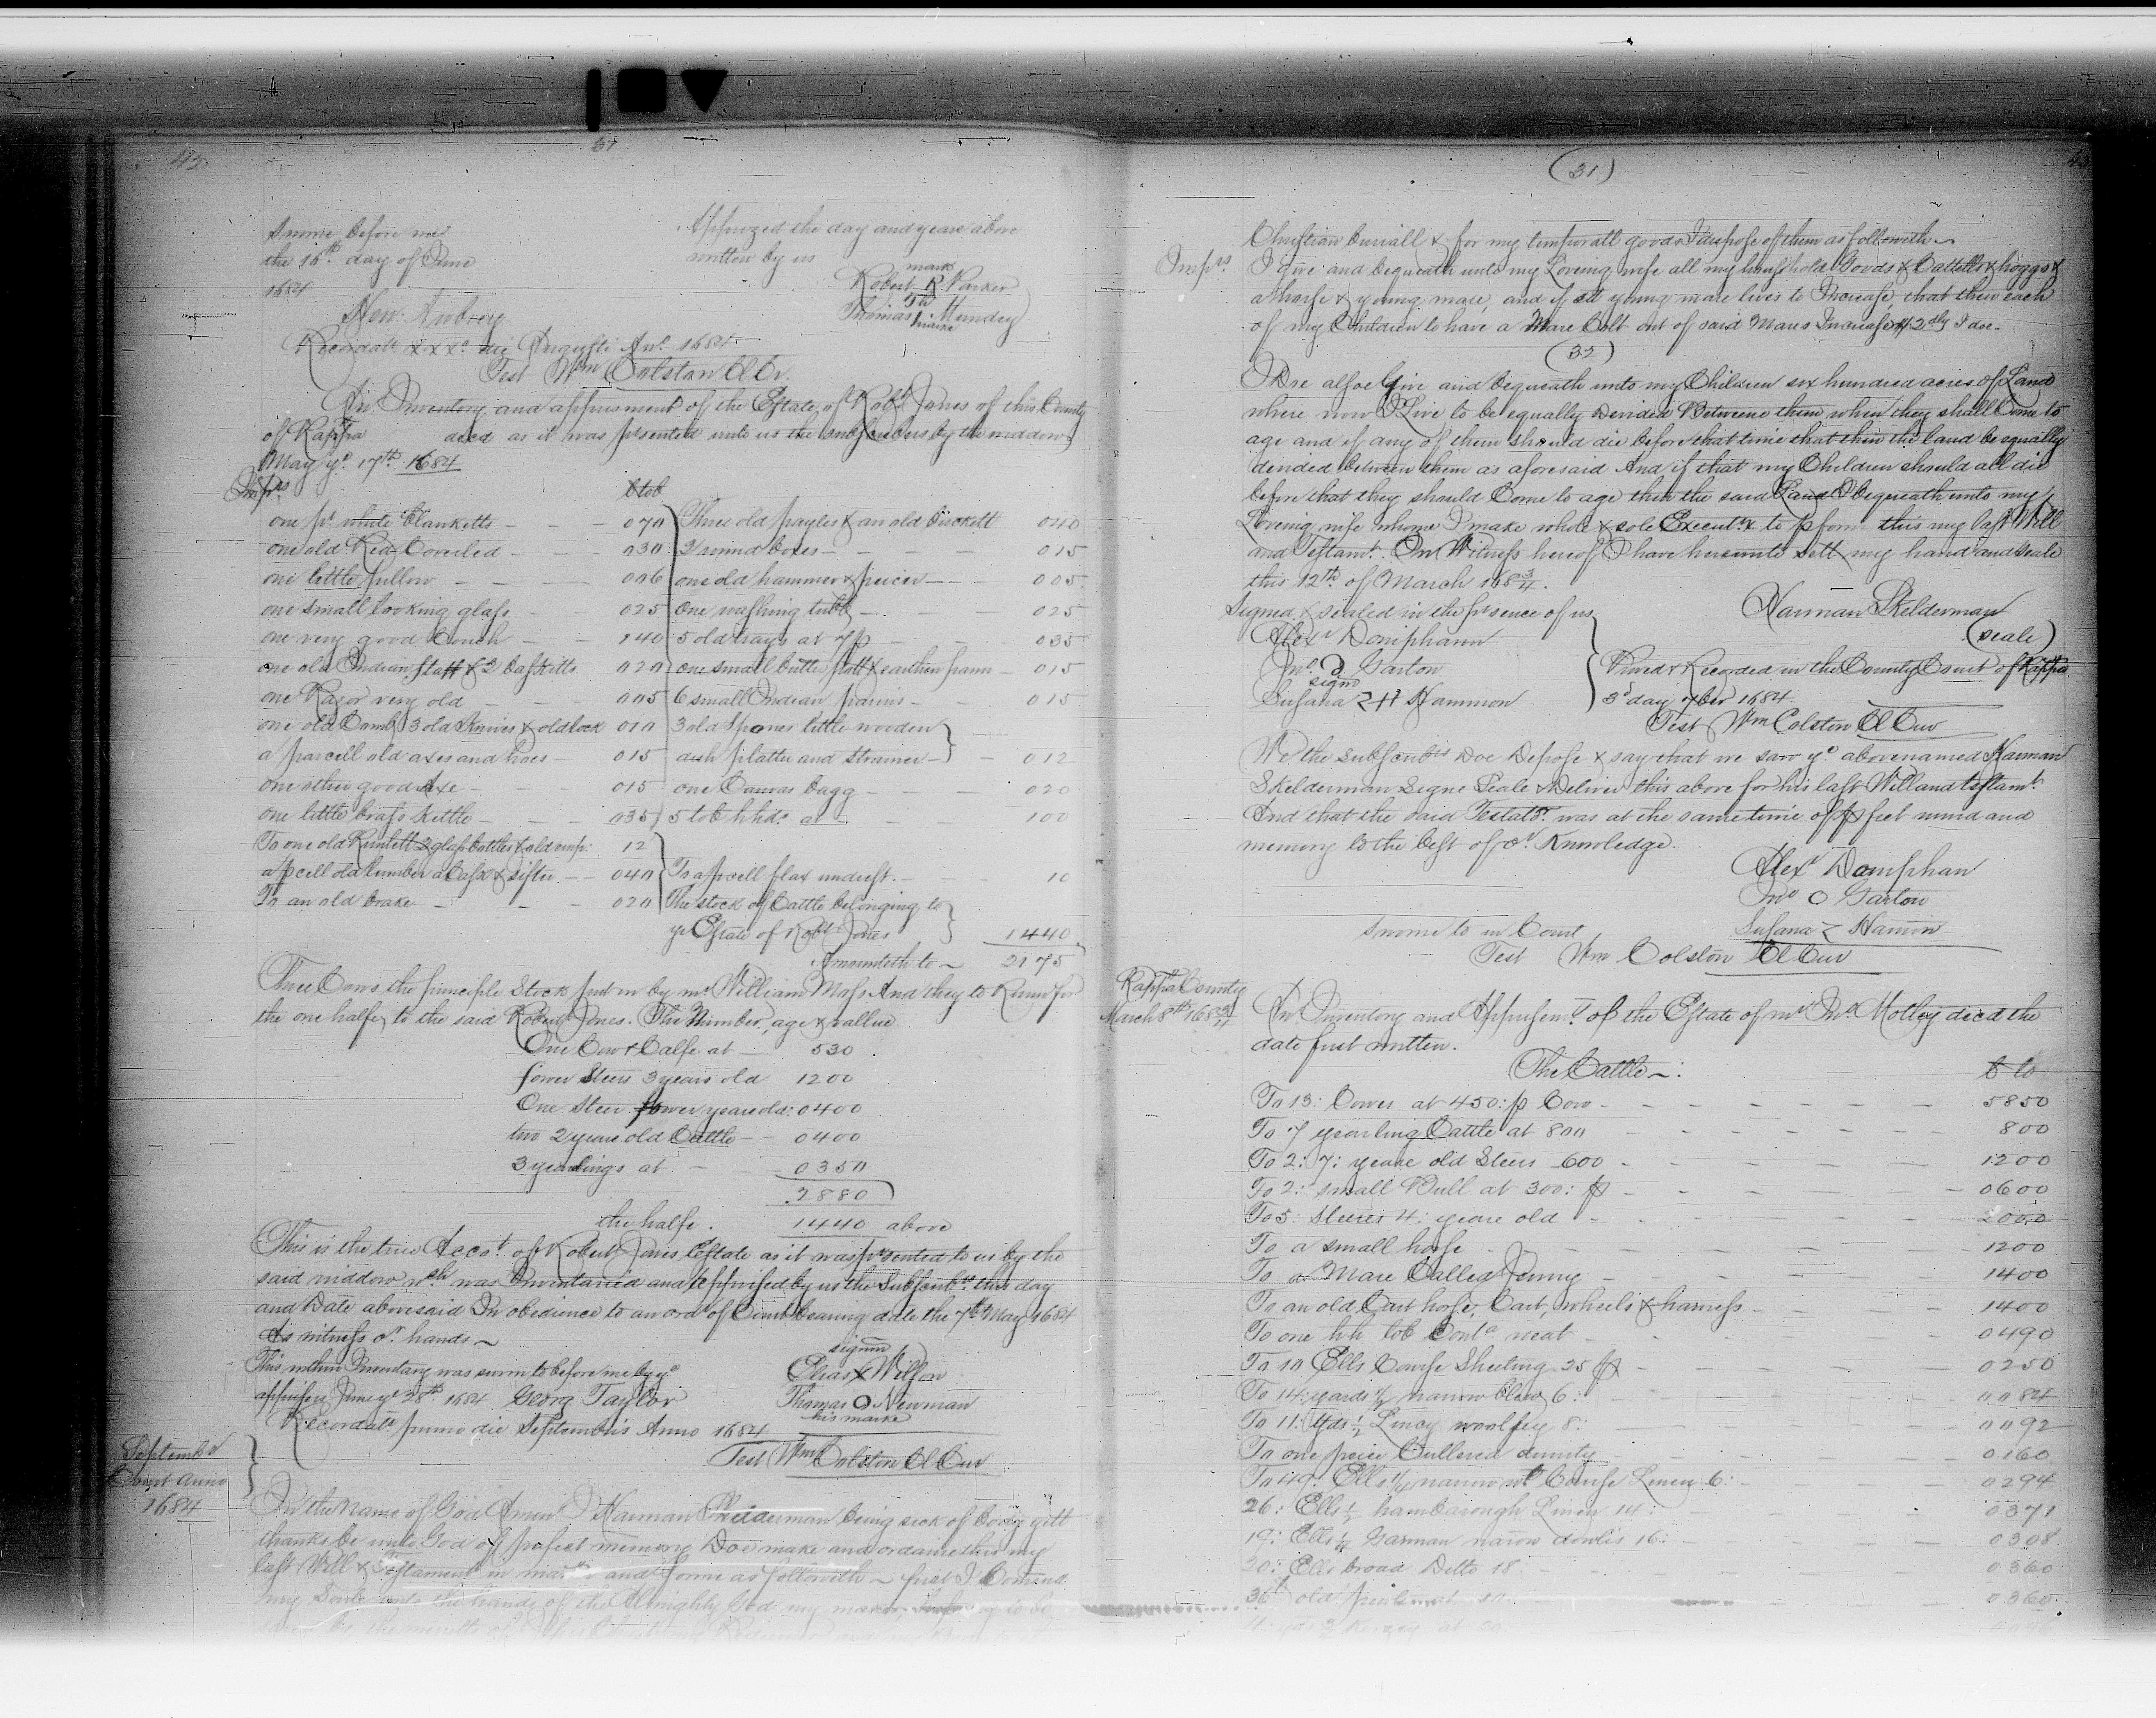 42
31
Sworne before me
the 16th day of June
1684
Hen: Aubrey
Apprized the day and yeare above
written by us
mark
Robert R Parker
Thomas TM Mundey
marke
Recordatr xxxo die Augusti Ano 1684
Test Wm Colston Cl Cr.
An Inventory and apprisment of the Estate of Robt Jones of this County
of Rappa decd as it was prsented unto us the subscribers by the widdow
May ye 17th 1684
Imprs
lb tob
one pr white Blanketts - - - 070
one old Red Coverled - - - 030
one little pillow - - - 006
one small looking glass - - 025
one very good Couch - - 140
one old Indian staff & 2 basketts 020
one Razor very old - - 005
one old Comb 3 old Knives & old lock 010
a parcell old axes and hoes - 015
one other good Axe - - - 015
one little brass kettle - - - 035
To one old Runlett 2 glass bottles & old 12
a pcell old lumber a Cask & sifter - - 040
To an old brake - - - 020
Three old payles & an old buckett 040
2 wind boxes - - - - 015
one old hammer & pincer - - - 005
One washing tubb - - - 025
5 old trays at 7 p - - 035
one small butter pott & earthen pann - 015
6 small Indian panns - - 015
3 old Spones little wooden
dish platter and strainer - - 012
one Canvas bagg - - - 020
5 tob hhds at - - 100
To a pcell flax undrest. - - - 10
The stock of Cattle belonging to
ye Estate of Robt Jones 1440
Amounteth to ~ 2175
Three Cows the principle Stock put in by mr William Moss And they to Runn for
the one halfe to the said Robert Jones. The Number, age & vallue
One Cow & Calfe at - 530
fower Steers 3 years old 1200
One Steer fower yeare old: 0400
two 2 yeare old Cattle - - 0400
3 yearlings at - 0350
2880
the halfe. 1440 above
This is the true Accot. of Robert Jones Estate as it was prsented to us by the
said widdow wch was Inventaried and Apprised by us the Subscrbrs this day
and Date abovesaid In obedience to an ordr of Court bearing date the 7th May 1684
As witness or. hands ~
This within Inventary was sworn to before me by ye
apprisers June ye 28th 1684 Georg Taylor
signum
Elias X Wilson
Thomas O Newman
his marke
Recordatr primo die Septembris Anno 1684
Test Wm Colston Cl Cur
Septembr
Court Anno
1684
In the Name of God Amen I Harman Skelderman being sick of body yett
thanks be unto God of profect memory Doe make and ordaine this my
last Will & Testament in manner and forme as followeth ~ first I Comend
my Soule into the hands of the Almighty God my maker
(31)
Christian buriall & for my temporall goods I dispose of them as followeth ~
Imprs I give and bequeath unto my Loveing wife all my household Goods & Cattells & hoggs &
a horse & young mare, and if sd young mare lives to Increase, that then each
of my Children to have a Mare Colt out of said Mares Increase & 2dly I doe -
(32)
I Doe alsoe Give and bequeath unto my Children six hundred acres of Land
where now I Live to be equally Devided Betweene them when they shall Come to
age and if any of them should die before that time that then the land be equally
devided between them as aforesaid And if that my Children should all die
before that they should Come to age then the said Land I bequeath unto my
Loveing wife whome I make whole & sole Executrx to pform this my last Will
and Testamt. In Witness hereof I have hereunto sett my hand and seale
this 12th of March 168¾.
Signed & sealed in the prsence of us
Alexr Domiphann
Jno. O Garton
signo
Susana Z H Hammon
Harman Skelderman
(seale)
Prived & Recorded in the County Court of Rappa
3d day 7ber 1684
Test Wm Colston Cl Cur
We the Subscribrs Doe Depose & say that we saw ye abovenamed Harman
Skelderman Signe Seale & Deliver this above for his last Will and testamt.
And that the said Testatr. was at the same time of pfect mind and
memory to the best of or. Knowledge.
Alexr Domphan
Jno O Garton
Susana Z Hamon
Sworne to in Court
Test Wm Colston Cl Cur
Rappa County
March 8th 168¾
An Inventory and Apprisemt. of the Estate of mr Jno. Motley decd the
date first written.
The Cattle ~:
lb to
To 13: Cowes at 450: p Cow - 5850
To 7 yearling Cattle at 800 - 800
To 2: 7: yeare old Steers 600 - 1200
To 2: small Bull at 300: p - 0600
To 5: Steeres 4: yeare old - 2000
To a small horse - 1200
To a Mare Called Jenny - 1400
To an old Cart horse, Cart, wheels & harness - 1400
To one hh tob Conta neat - 0490
To 10 Ells Course Sheeting 25 p - 0250
To 14: yards ½ narrow blew 6: - 0084
To 11: Yds ½ Lincy woolsey 8: - 0092
To one peice Cullered dimity - 0160
To 49: Ells ½ narrow wt Course Linen 6: - 0294
26: Ells ½ hambarough Linen 14: - 0371
19: Ells ¼ Garman narow dowlis 16: - 0308
20: Ells broad Ditto 18 - 0360
36 old - 0360
yds Kersey at 50